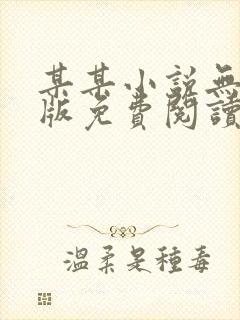 某某小說無
版免費閱讀
溫柔是種毒